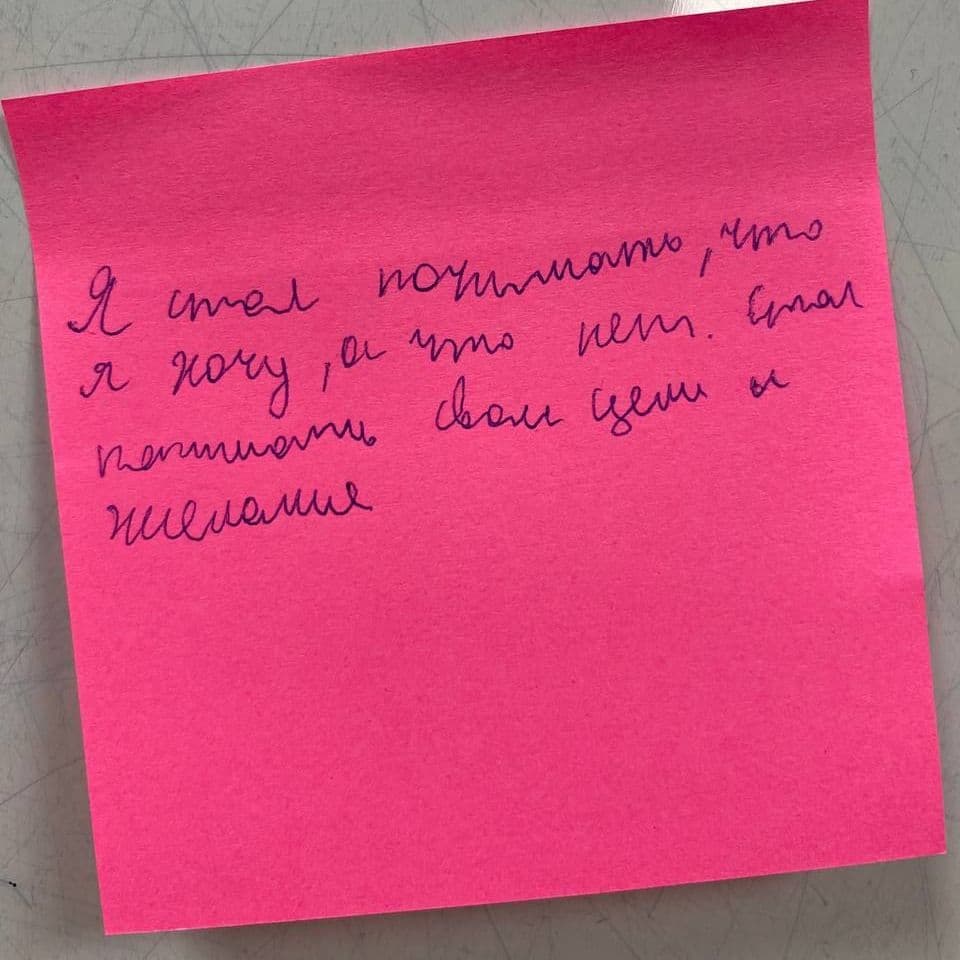 Я стал понимать, что
я хочу, а что нет. Стал
понимать свои цели и
желания